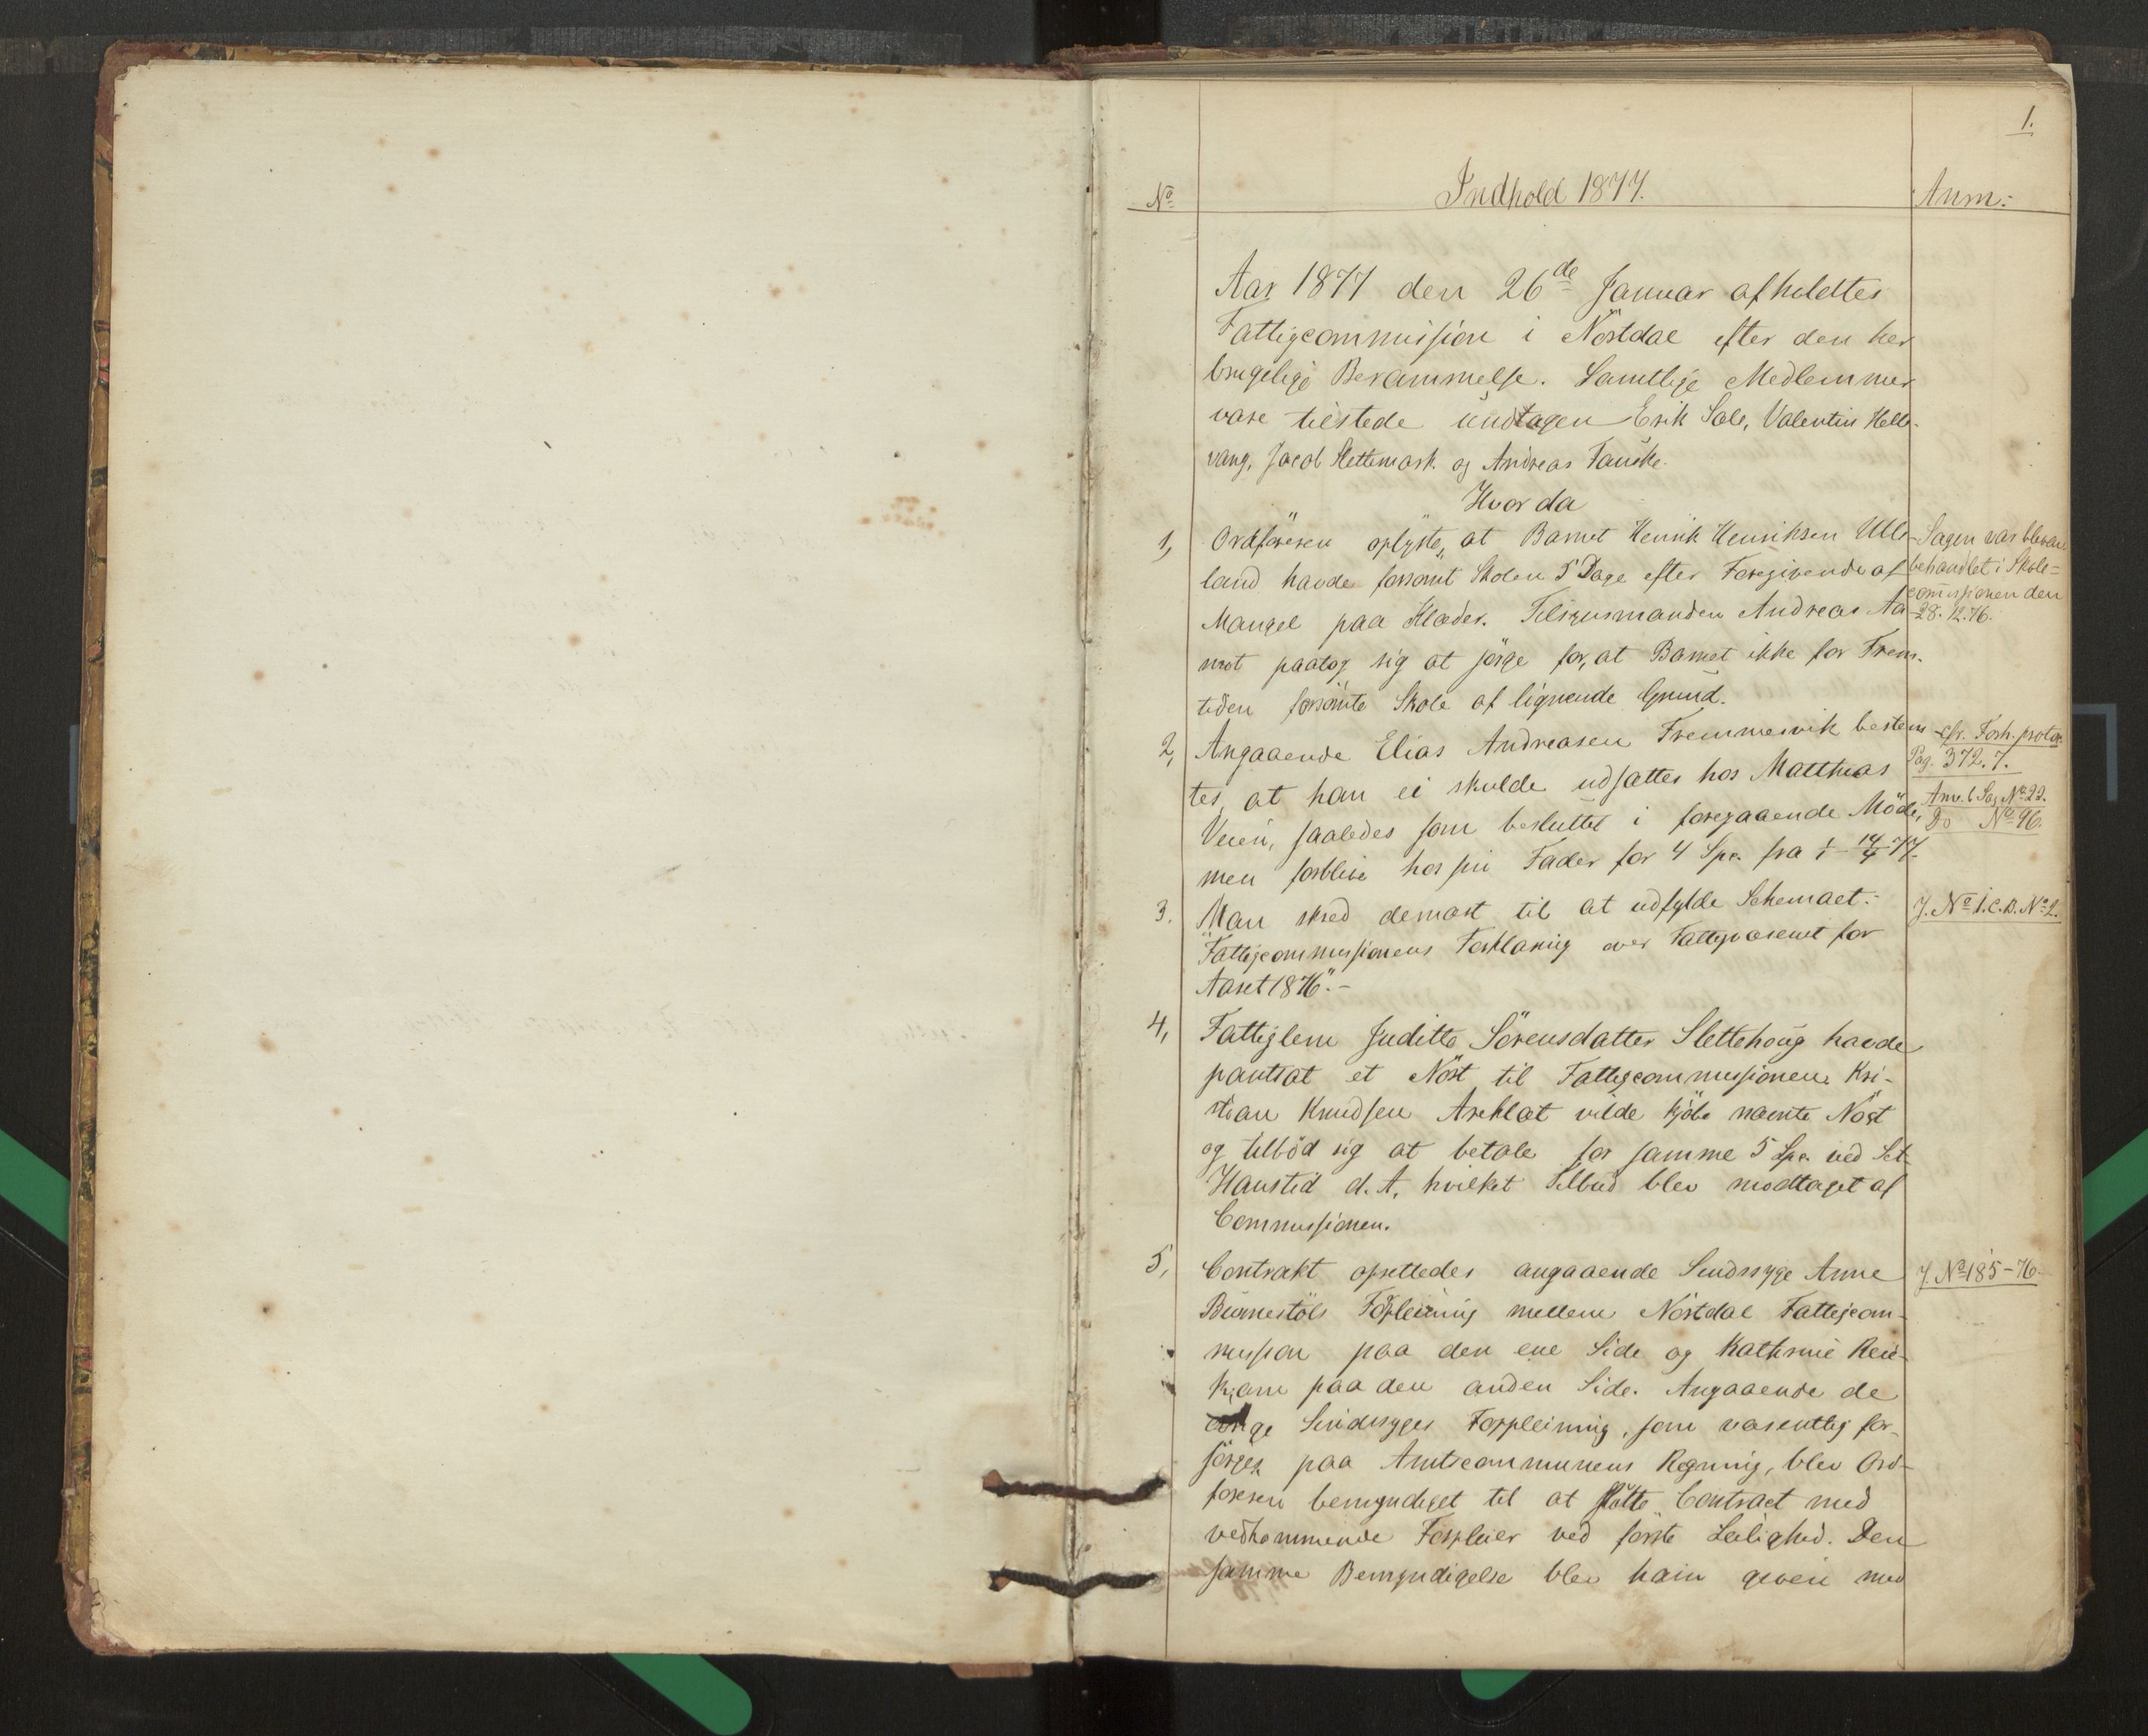 1.
No Indhold 1877. Anm:
Aar 1877 den 26de Januar afholdtes
Fattigcommission i Nöstdal efter den her
brugelige Berammelse. Samtlige Medlemmer
vare tilstede undtagen Erik Sole, Valentin Helle-
vang, Jacob Slettemark og Andreas Fauske.
Hvor da
1, Ordföreren oplyste, at Barnet Henrik Henriksen Ulle-
land havde forsömt Skolen 5 Dage efter Foregivende af
Mangel paa Klæder. Tilsynsmanden Andreas Aa-
mot paatog sig at sörge for, at Barnet ikke for Frem-
tiden forsömte Skole af lignende Grund.
Sagen var bleven
behandlet i Skole=
comissionen den
28.12.76.
2, Angaaende Elias Andreasen Fremmervik bestem-
tes, at han ei skulde udsættes hos Matthias
Veien, saaledes som besluttet i foregaaende Möde,
men forblive hos sin Fader for 4 Spd. fra 1/1 - 14/4 77.
cfr. Forh. protoc.
Pag. 372.7.
Anv. b Sag No 22.
Do No 96.
3. Man skred dernæst til at udfylde Schemaet:
"Fattigcommissionens Forklaring over Fattigvæsenet for
Aaret 1876". -
J. No 1. C.B. No 2.
4, Fattiglem Juditte Sörensdatter Slettehoug havde
pantsat et Nöst til Fattigcommissionen. Kri-
stian Knudsen Areklæt vilde kjöbe nævnte Nöst
og tilböd sig at betale for samme 5 Spd. ved Sct
Hanstid d. A, hvilket Tilbud blev modtaget af
Commissionen.
5, Contrakt oprettedes angaaende Sindssyge Anne
Forpleining mellem Nöstdal Fattigcom-
mission paa den ene Side og Kathrine Rei-
paa den anden Side. Angaaende de
övrige Sindssyges Forpleining, som væsentlig for-
sörges paa Amtscommunens Regning, blev Ord-
föreren bemyndiget til at slutte Contract med
vedkommende Forpleier ved förste Leilighed. Den
samme Bemyndigelse blev ham given med
J. No 185-76.